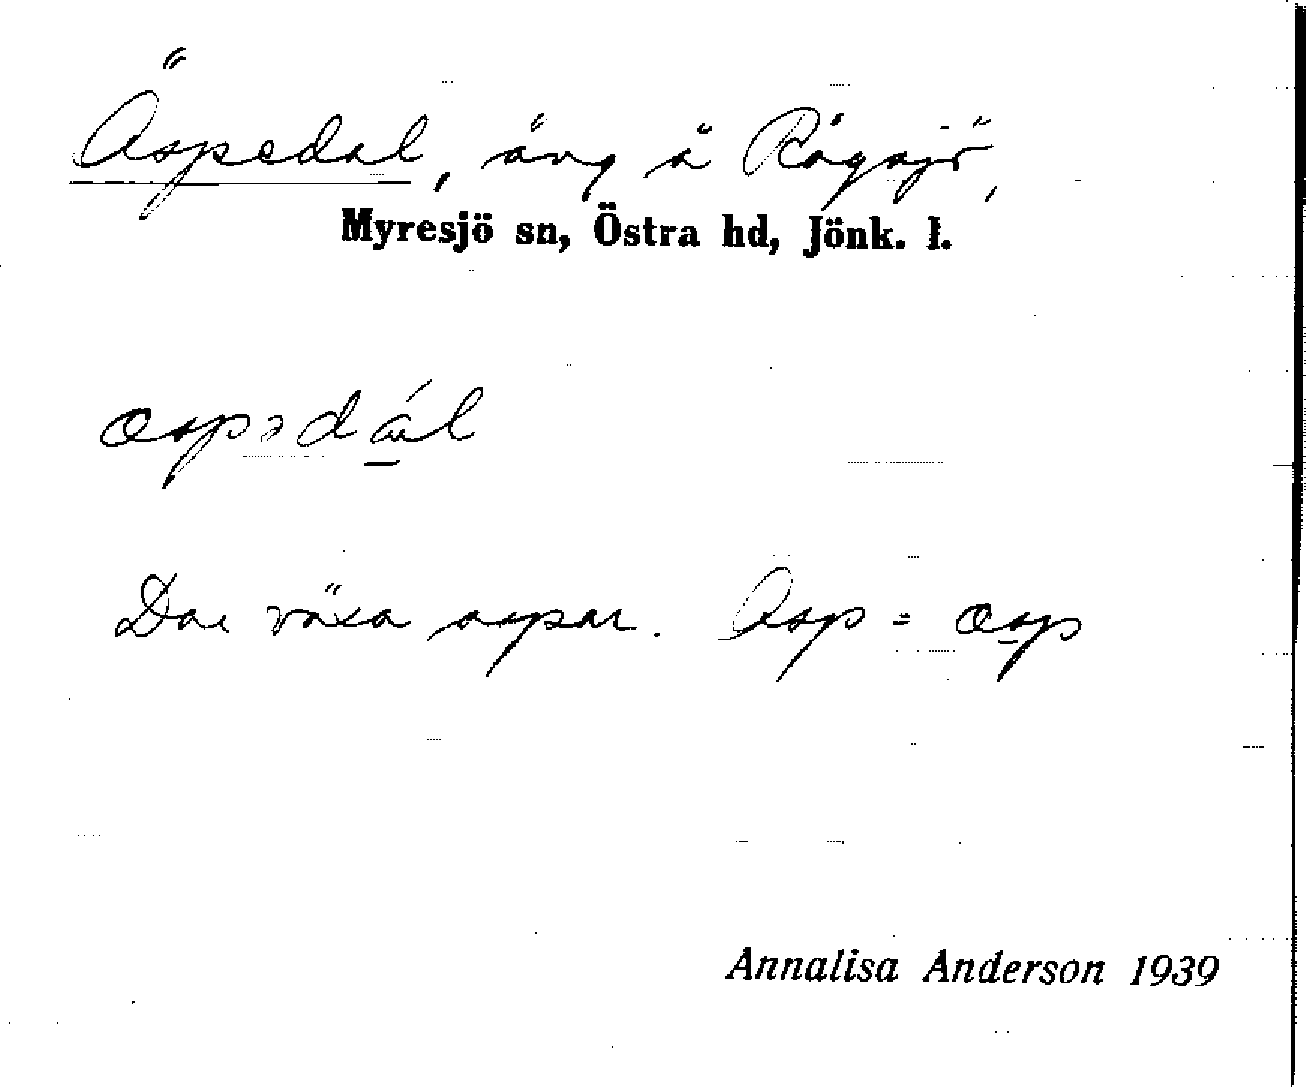 Äspedal, äng å Rågsjö,
Myresjö sn, Östra hd, Jönk. l.
æspədál
Där växa aspar. Asp = æsp
Annalisa Anderson 1939